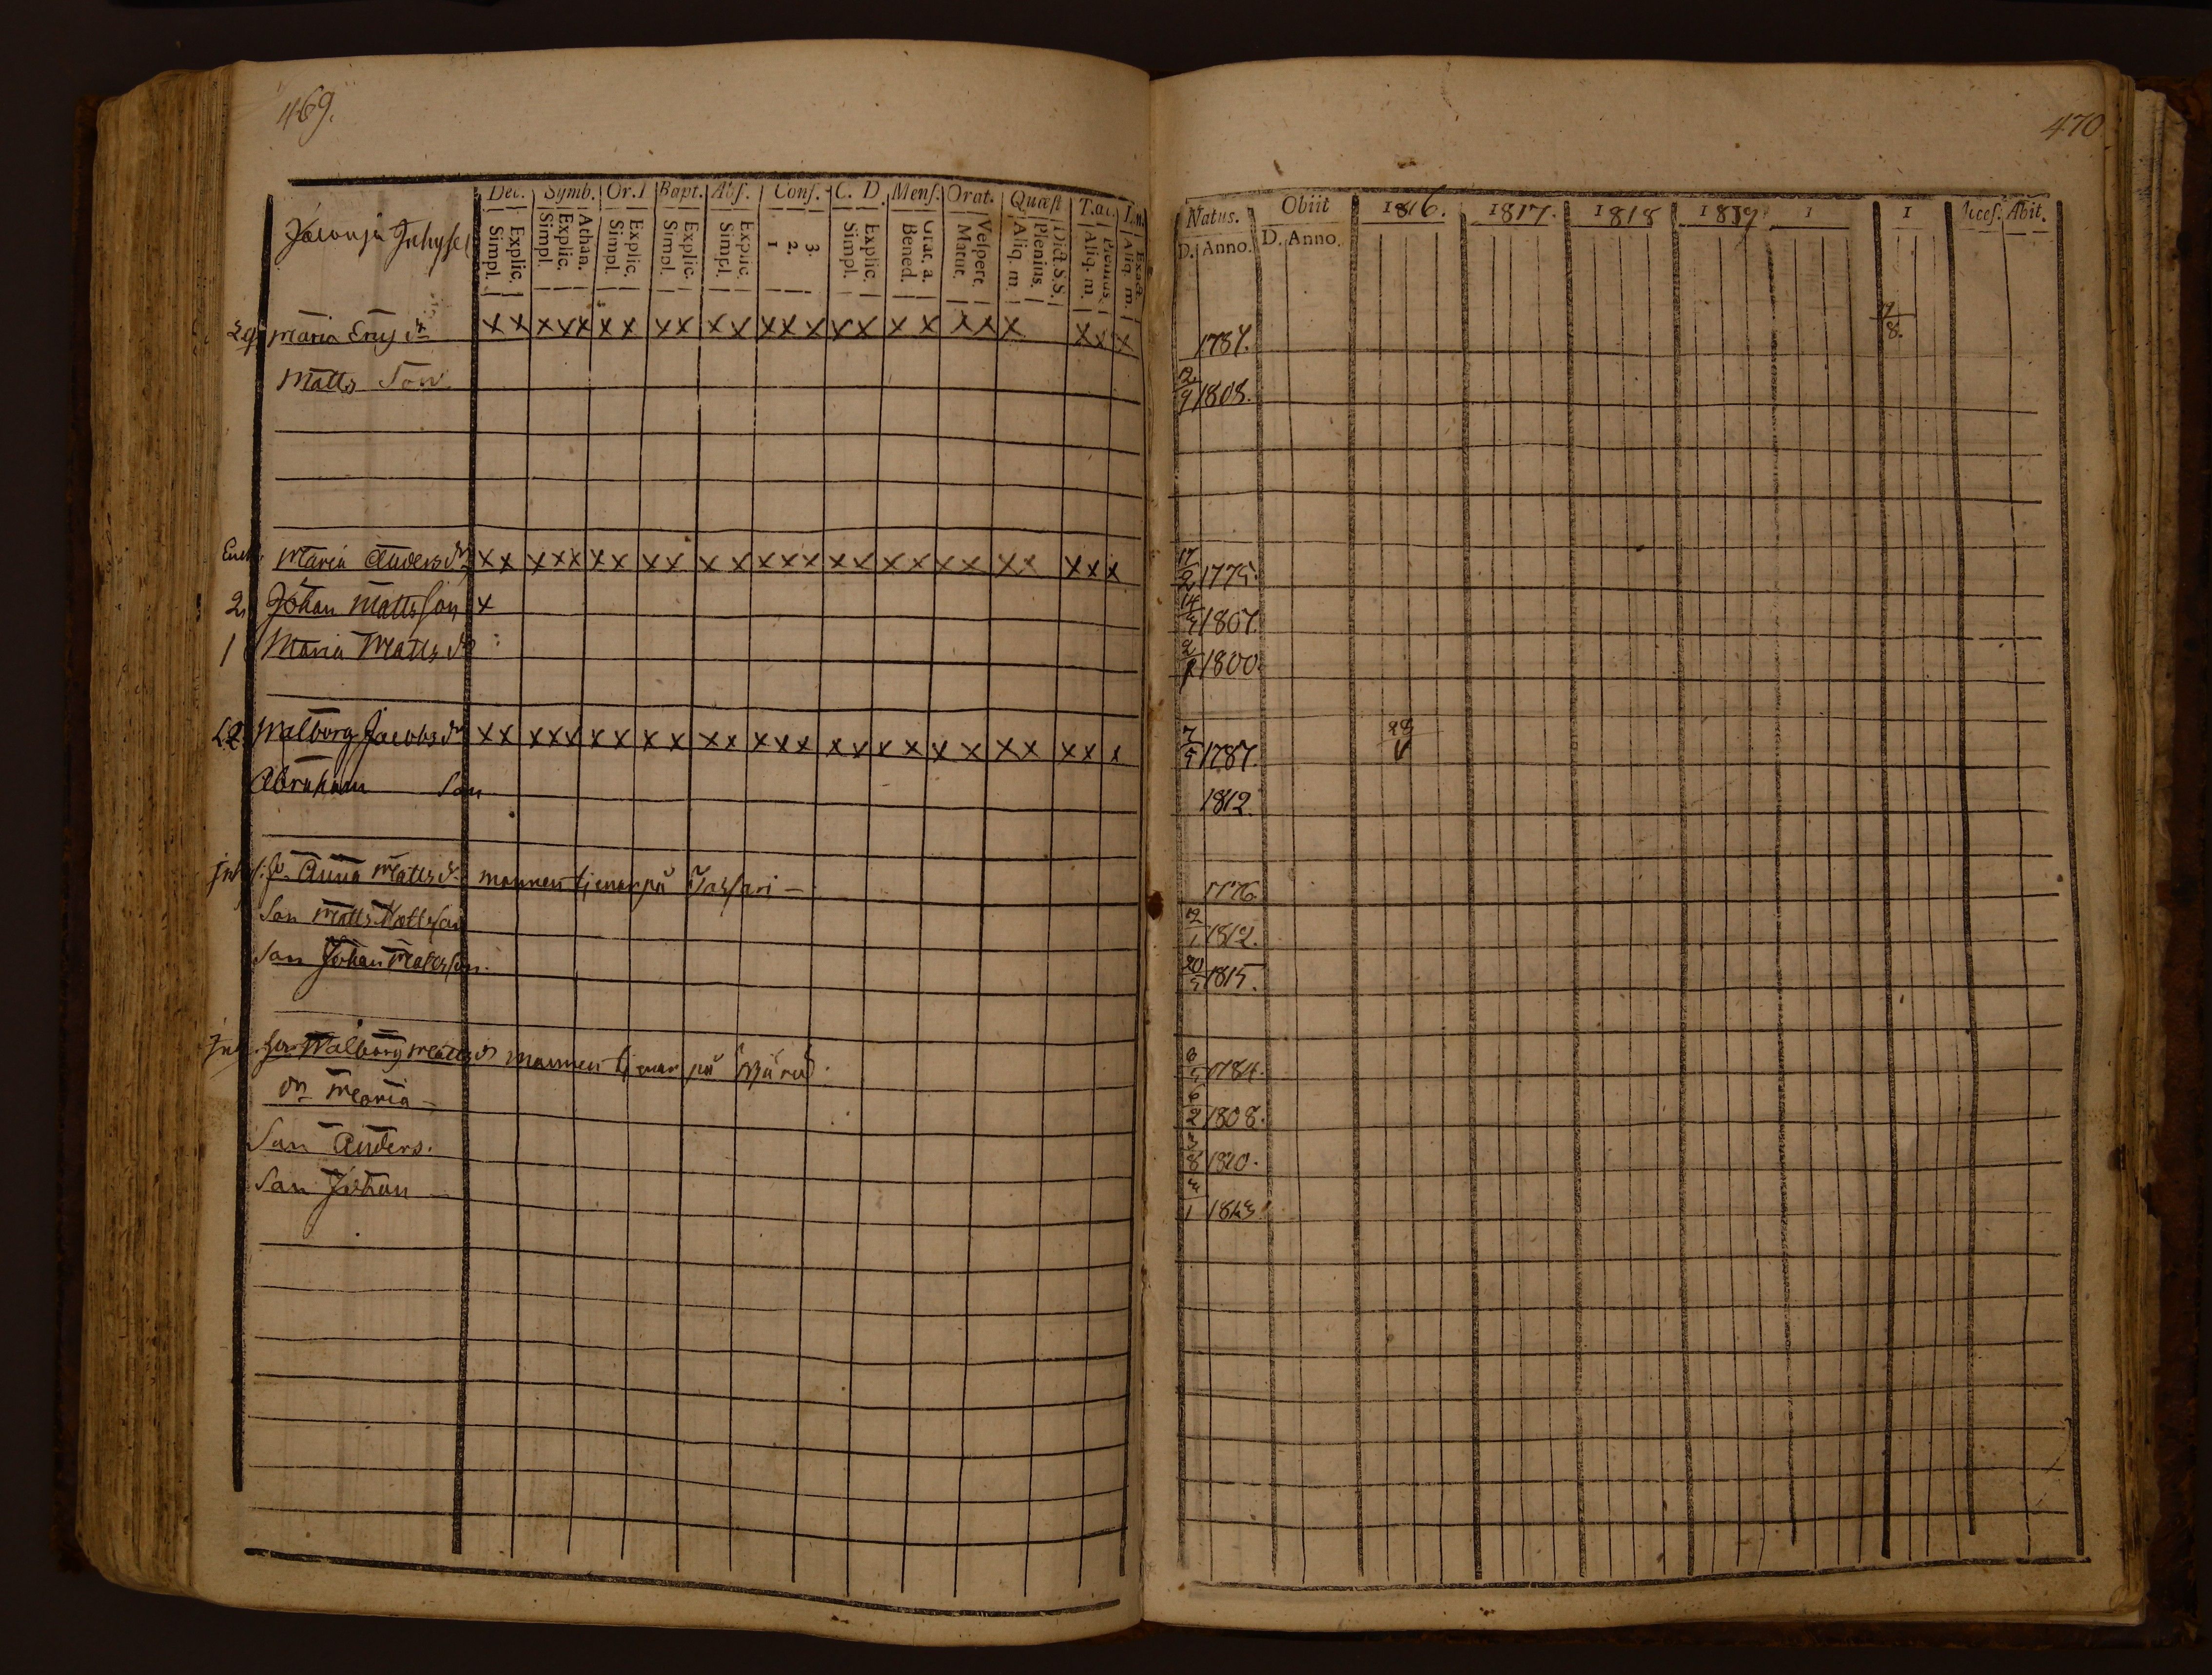 469.
Dec. Symb. Or. I Bapt. Abs. Conf. C. D. Mens. Orat. Quæst T. ac.
Simpl. Explic. Simpl. Explic. Athan. Simpl. Explic. Simpl. Explic. Simpl. Explic. 1 2. 3. Simpl. Explic. Bened. Grat. a. Matut. Vespert. Aliq. m. Plenius. Dict S.S. Aliq. m. Plenius. Aliq. m. Exact.
Inhyses
Maria Ericsdr x x x x x x x x x x x x x x x x x x x x x x x x
Matts Son
Enk. Maria Andersdr x x x x x x x x x x x x x x x x x x x x x x x x x
2 Johan Mattsson x
1 Maria Mattsdr
Walborg Jacobsdr x x x x x x x x x x x x x x x x x x x x x x x x x
Abraham Son
Anna Mattsdr mannen tjenar på
Son Matts Mattsson
Son Johan Mattsson.
Walborg Mattsdr mannen tjenar på
dr Maria
Son Anders.
Son Johan
470
Natus. Obiit 1816. 1817. 1818 1819 1 1 Acces. Abit.
D. Anno. D. Anno.
1784. 7/8.
12/9 1808.
17/2 1775.
14/3 1807.
2/1 1800.
7/5 1787. 28/4
1812.
1776
12/1 1812.
20/5 1815.
8/5 1784.
6/2 1808.
3/8 1810.
3/1 1813.